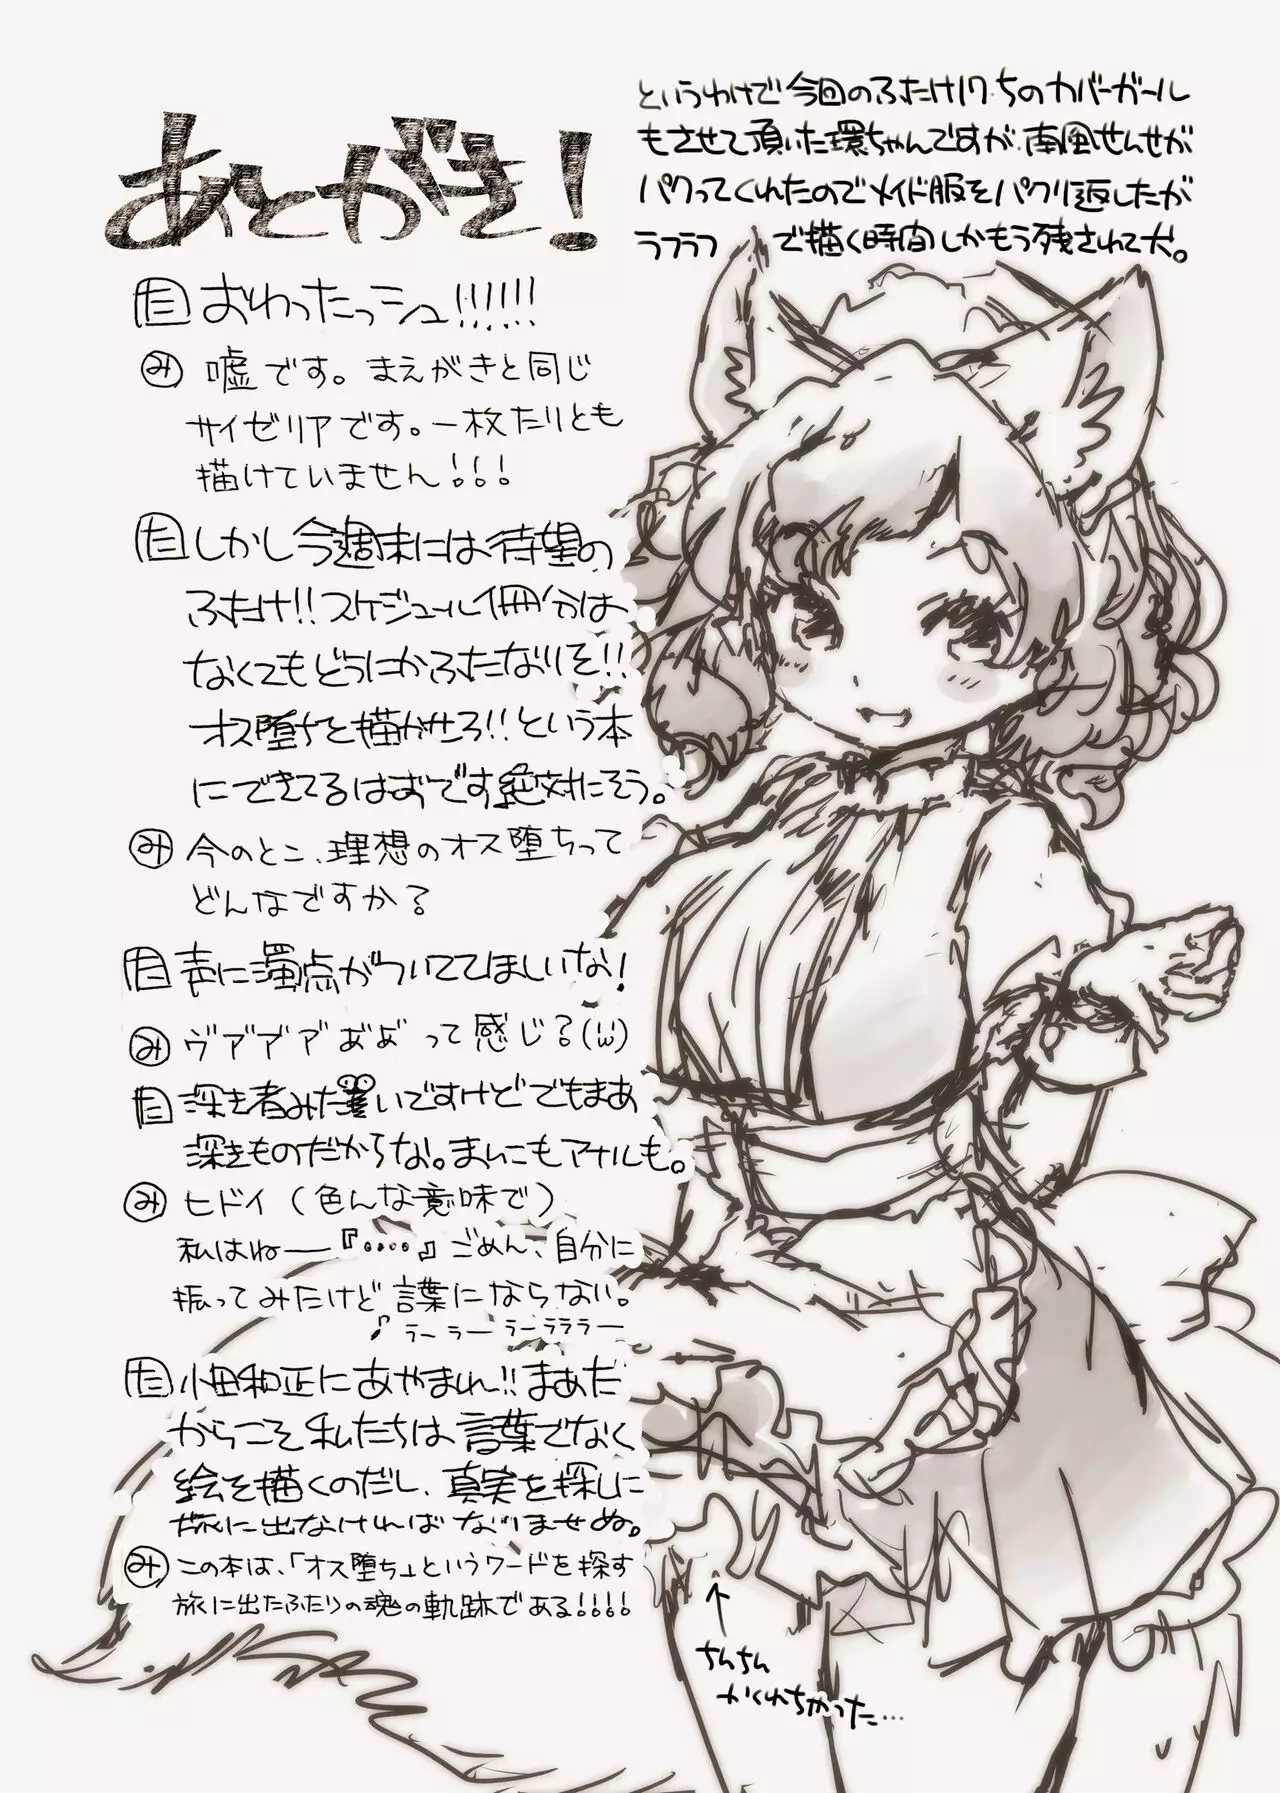 あとがき!
というわけで今回のふたけ17.5のカバーガール
もさせて頂いた環ちゃんですが、南風せんせが
パクってくれたのでメイド服をパクリ返したが
ラフラフ で描く時間しかもう残されて犬。
た おわったっシュ!!!!!!
み 嘘です。まえがきと同じ
サイゼリアです。一枚たりとも
描けていません!!!
た しかし今週末には待望の
ふたけ!!スケジュール1冊分は
なくてもどうにかふたなりを!!
オス堕ちを描かせろ!!という本
にできてるはずです絶対にそう。
み 今のとこ、理想のオス堕ちって
どんなですか?
た 声に濁点がついててほしいな!
み ヴア゛ア゛ア゛あ゛あ゛って感じ?(\'ω')
た 深き者みたいですけどでもまあ
深きものだからな。まんこもアナルも。
み ヒドイ(色んな意味で)
私はねー『・・・・』ごめん、自分に
振ってみたけど言葉にならない。
♪ラーラーラーラララー
た 小田和正にあやまれ!!まあだ
からこそ私たちは言葉でなく
絵を描くのだし、真実を探しに
旅に出なければなりませぬ。
み この本は、「オス堕ち」というワードを探す
旅に出たふたりの魂の軌跡である!!!!
↑
ちんちん
かくれちゃった…